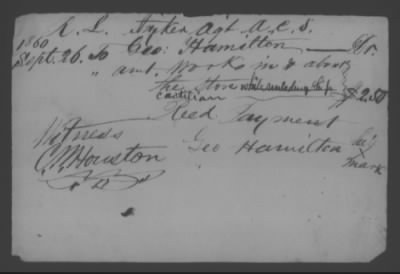 R. L. Stryker Agt A.C.S.
1860
Sept. 26. To Geo: Hamilton — Dr.
" amt. works in & about
the store while unloading ship $2.50
Castilian
Recd Payment
Witness
Geo Hamilton his
C W Houston X mark